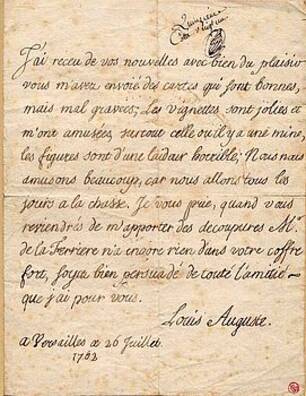 J'ai receu de vos nouvelles avec bien du plaisir
vous m'avez envoié des cartes qui font bonnes,
mais mal gravées; Les vignettes sont jolies et
m'ont amusées, surtout celle ou il y a une mine,
les figures sont d'une laidair horrible; Nous nous
amusons beaucoup, car nous allons tous les
jours a la chasse. Je vous prie, quand vous
reviendrés de m'apporter des decoupures M.
de la Ferriere n'a encore rien dans votre coffre
fort, soyez bien persuadé de toute l'amitié
que j'ai pour vous.
Louis Auguste.
a Versailles ce 26 Juillet
1762